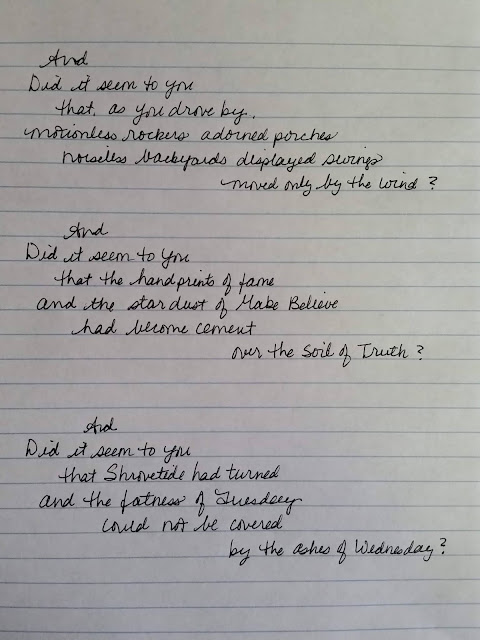 And
Did it seem to you
that, as you drove by,
motionless rockers adorned porches
noiseless backyards displayed swings
moved only by the wind?
And
Did it seem to you
that the handprints of fame
and the stardust of Make Believe
had become cement
over the Soil of Truth?
And
Did it seem to you
that Shrovetide had turned
and the fatness of Tuesday
could not be covered
by the ashes of Wednesday?